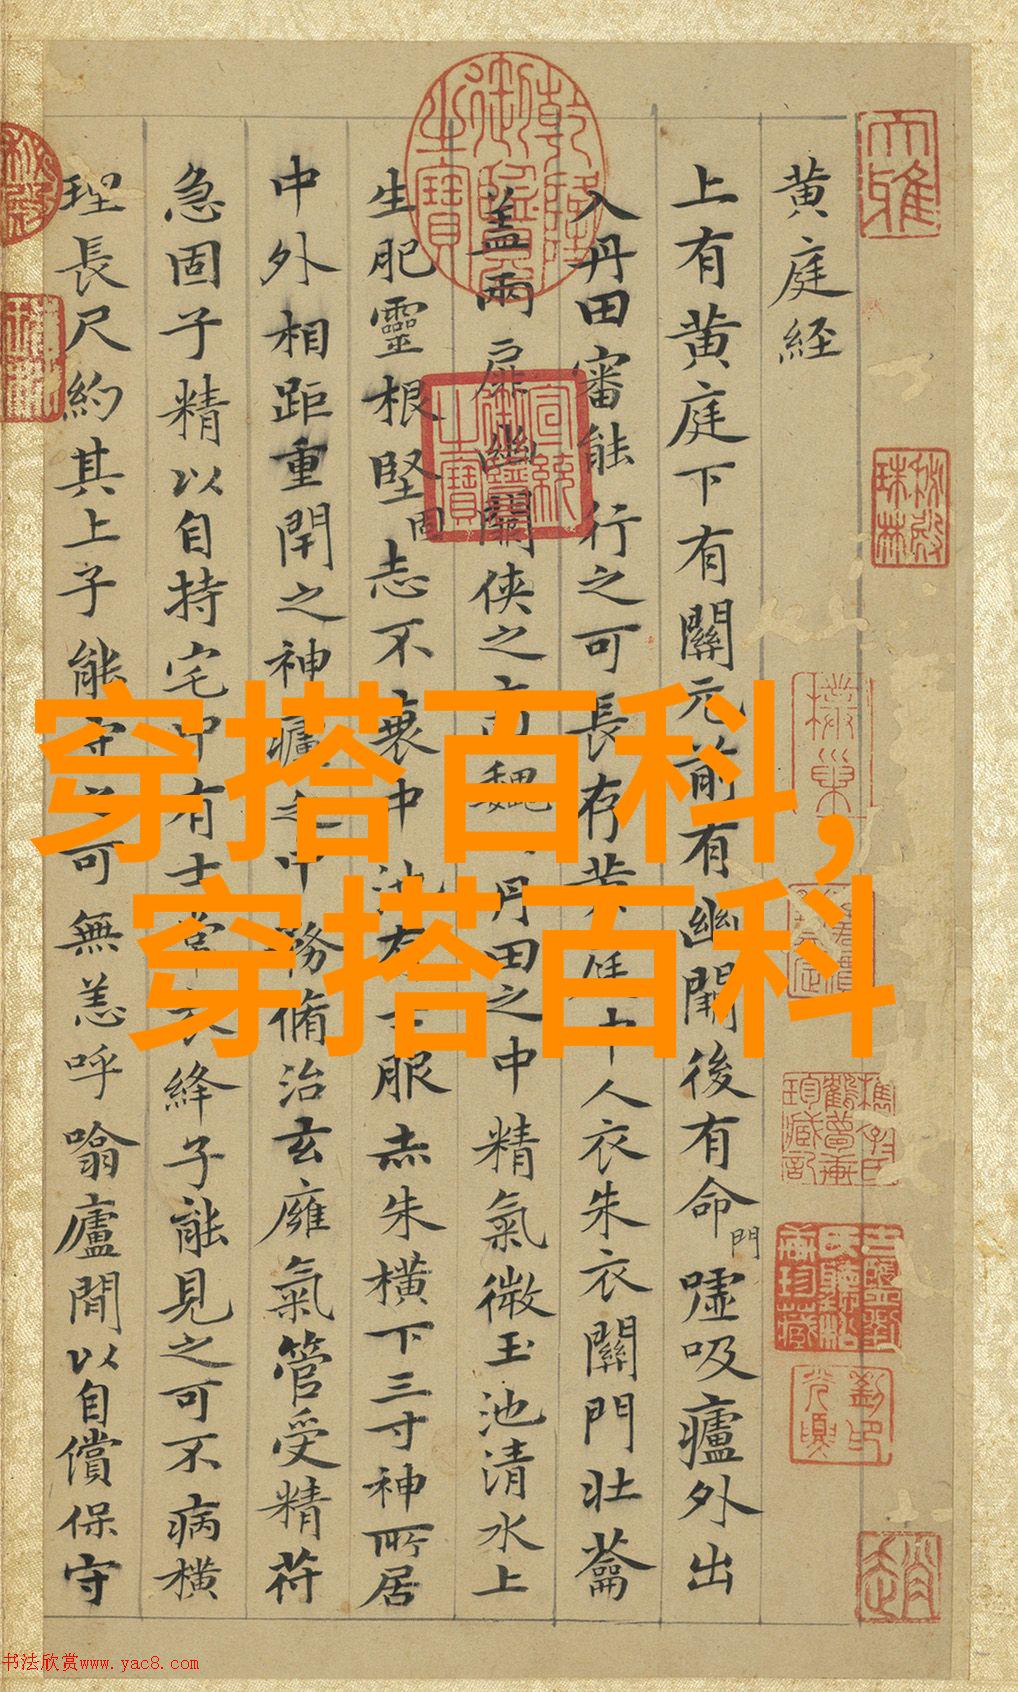 黄庭経
上有黄庭下有關元前有幽闗後有命門嘘吸廬外出
入丹田審能行之可長存黄庭中人衣朱衣關門壯蘥
蓋兩扉幽關俠之高巍丹田之中精氣微玉池清水上
生肥靈根堅固志不衰中池有士服赤朱横下三寸神所居
中外相距重閇之神廬之中務脩治玄廱氣管受精苻
急固子精以自持宅中有士常衣絳子能見之可不病横
理長尺約其上子能守之可無恙呼噏廬間以自償保守
乾隆御覽之寶
宣統御覽之寶
大雅
秘殿珠林
穿搭百科,
穿搭百科
书法欣赏www.yac8.com